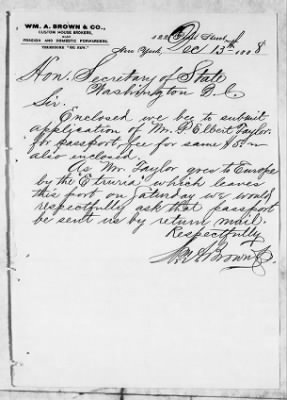 WM. A. BROWN & CO.,
CUSTOM HOUSE BROKERS,
ALSO
FOREIGN AND DOMESTIC FORWARDERS.
New York, Dec 13th 1888
Hon. Secretary of State
Washington D.C.
Sir.
Enclosed we beg to submit
application of Mr. P Elbert Taylor.
for passport, fee for same
also enclosed.
As Mr. Taylor goes to Europe
by the "Etruria" which leaves
this port on Saturday we would
respectfully ask that passport
be sent us by return mail.
Respectfully
Wm A Brown & Co.